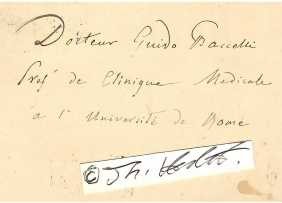 Docteur Guido Baccelli
Prof de Clinique Medicale
a l'Université de Rome
©